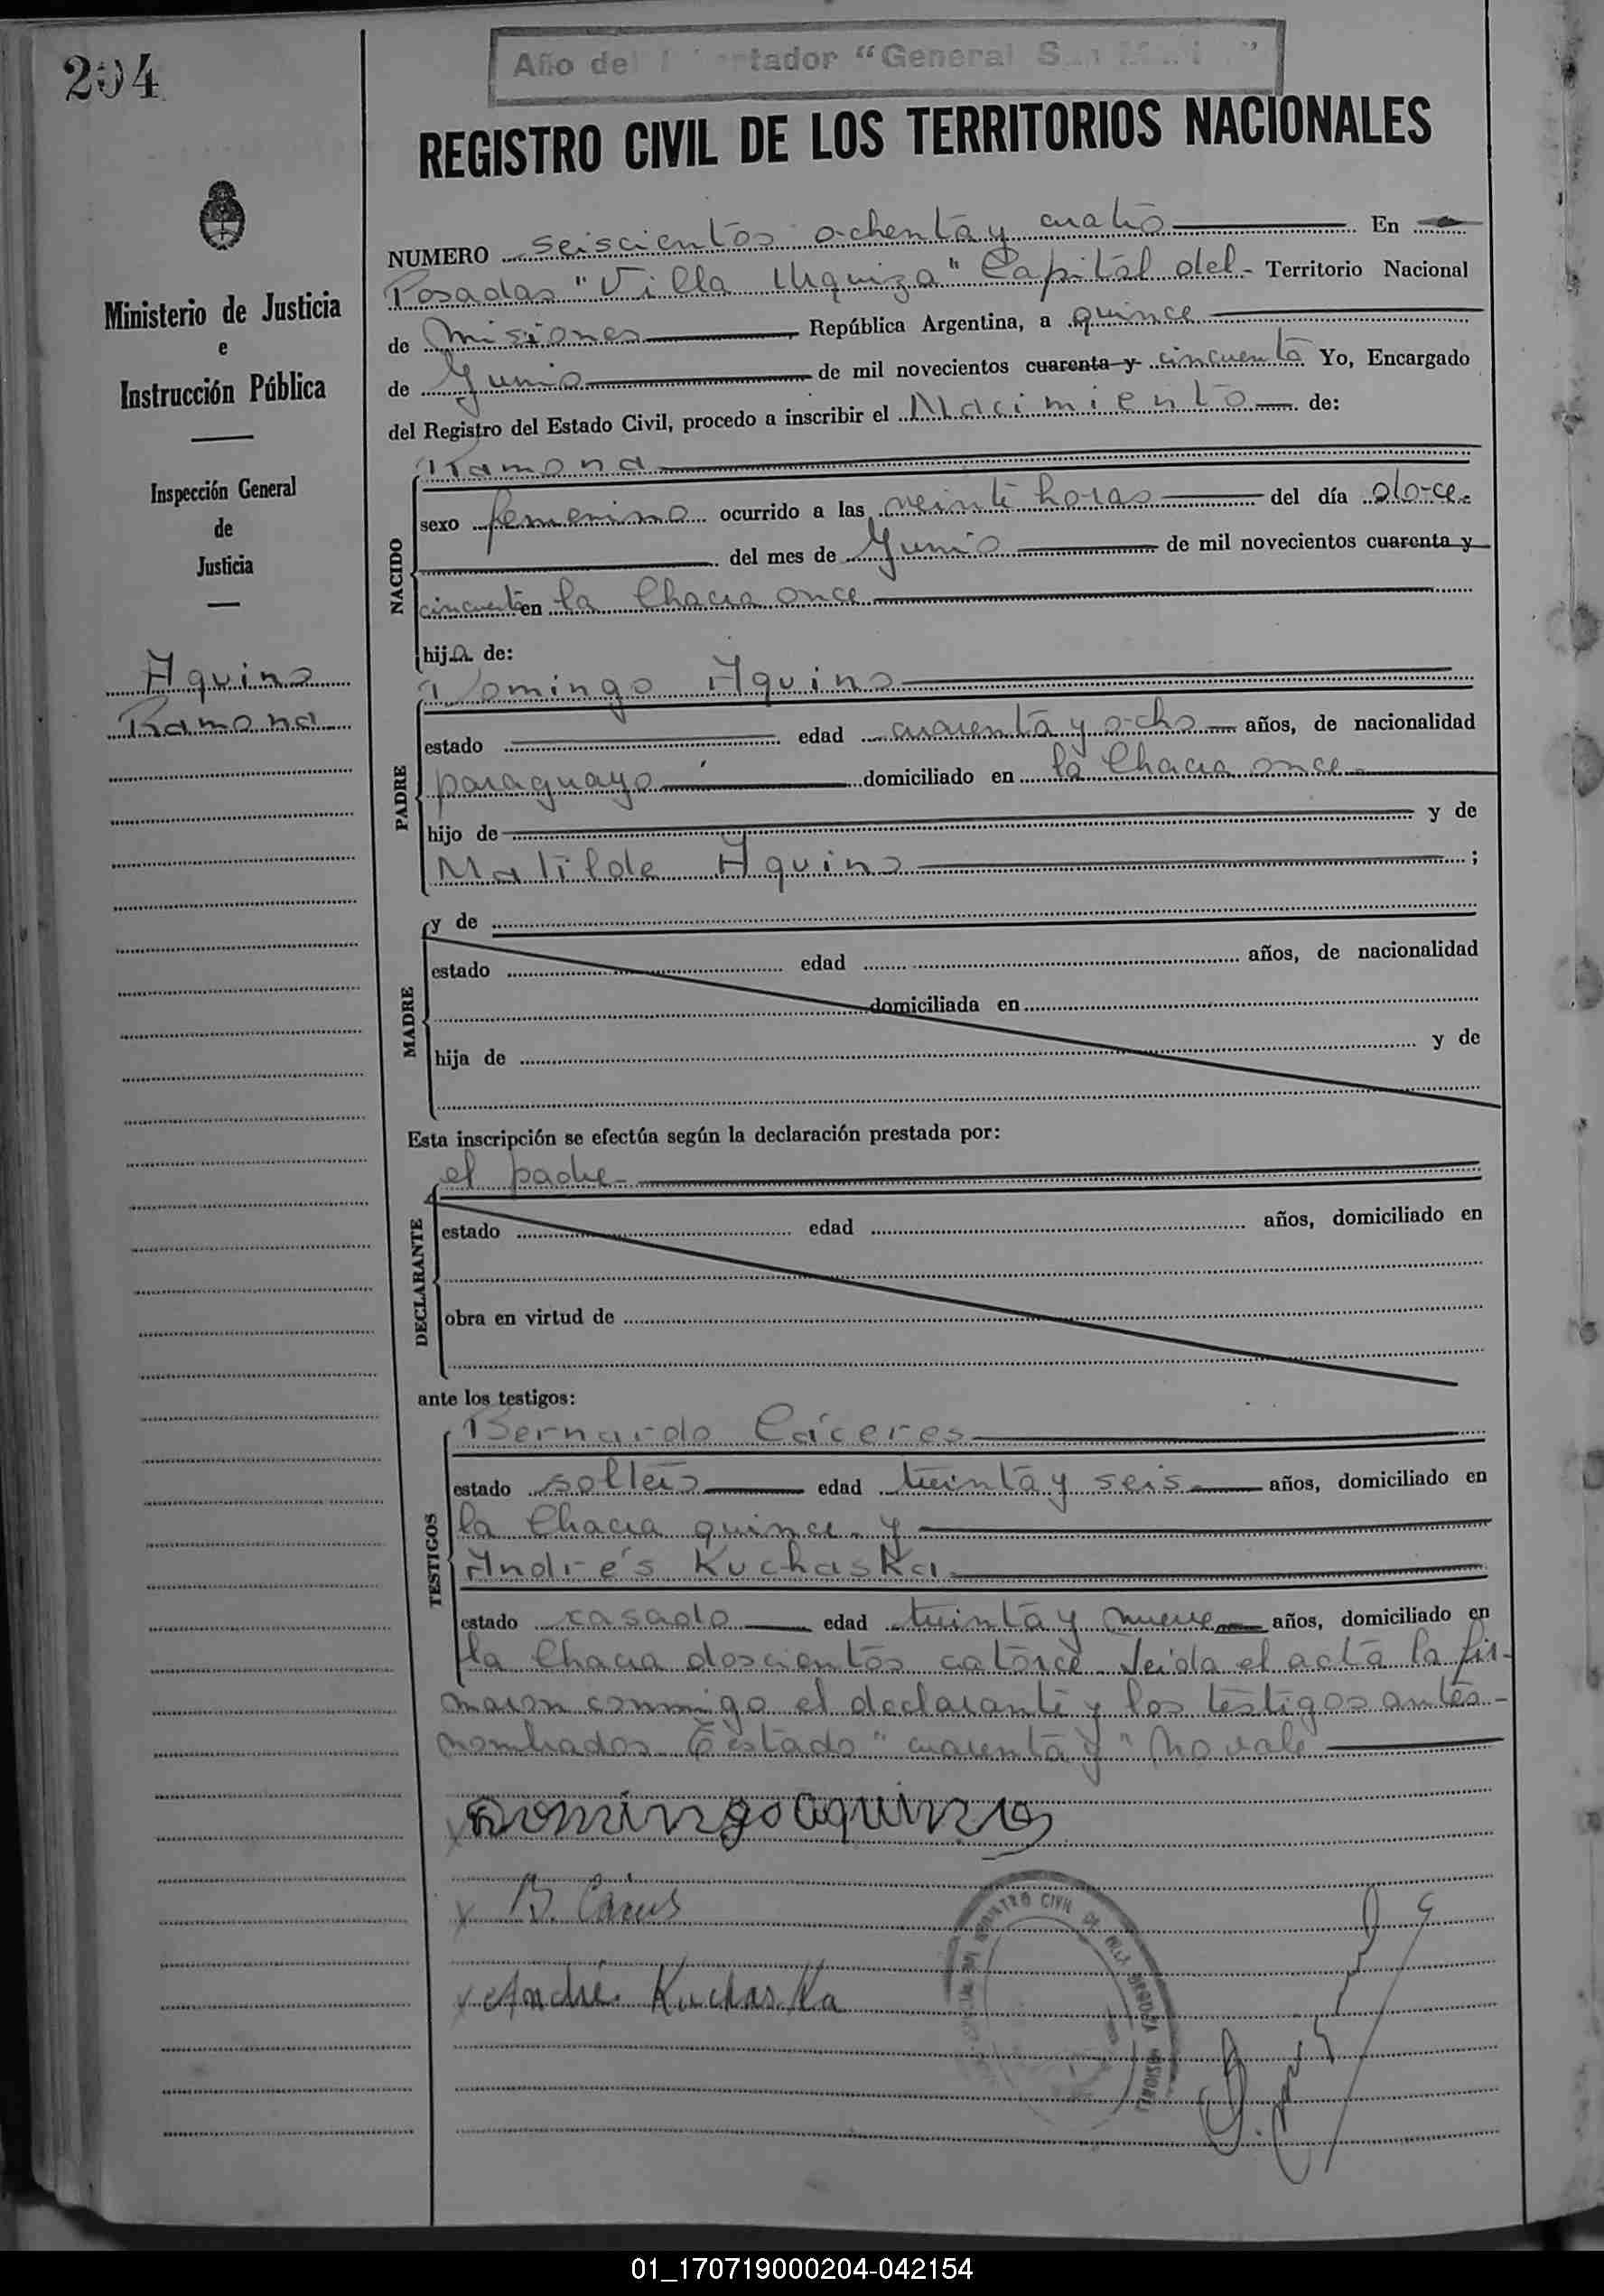 204
Año del Libertador “General San Martín”
REGISTRO CIVIL DE LOS TERRITORIOS NACIONALES
Ministerio de Justicia
e
Instrucción Pública
Inspección General
de
Justicia
Aquino
Ramona
NUMERO seiscientos ochenta y cuatro En
Posadas "Villa Urquiza" Capital del Territorio Nacional
de Misiones, República Argentina, a quince
de Junio de mil novecientos cuarenta y cincuenta Yo, Encargado
del Registro del Estado Civil, procedo a inscribir el Nacimiento de:
NACIDO
Ramona
sexo femenino ocurrido a las veinte horas del día doce
del mes de Junio de mil novecientos cuarenta y
cincuenta en la Chacra once
hija de:
PADRE
Domingo Aquino
estado edad cuarenta y ocho años, de nacionalidad
paraguayo domiciliado en la Chacra once
hijo de y de
Matilde Aquino ;
MADRE
y de
estado edad años, de nacionalidad
domiciliada en
hija de y de
Esta inscripción se efectúa según la declaración prestada por:
DECLARANTE
el padre
estado edad años, domiciliado en
obra en virtud de
ante los testigos:
TESTIGOS
Bernardo Cáceres
estado soltero edad treinta y seis años, domiciliado en
la Chacra quince. y
Andrés Kuchaska
estado casado edad treinta y nueve años, domiciliado en
la Chacra doscientos catorce. Leida el acta la fir-
maron conmigo el declarante y los testigos antes
nombrados. Testado "cuarenta y" No vale
Domingo aquino
B. Cáceres
Andrés Kuchaska
REGISTRO CIVIL DE VILLA URQUIZA MISIONES
01_170719000204-042154